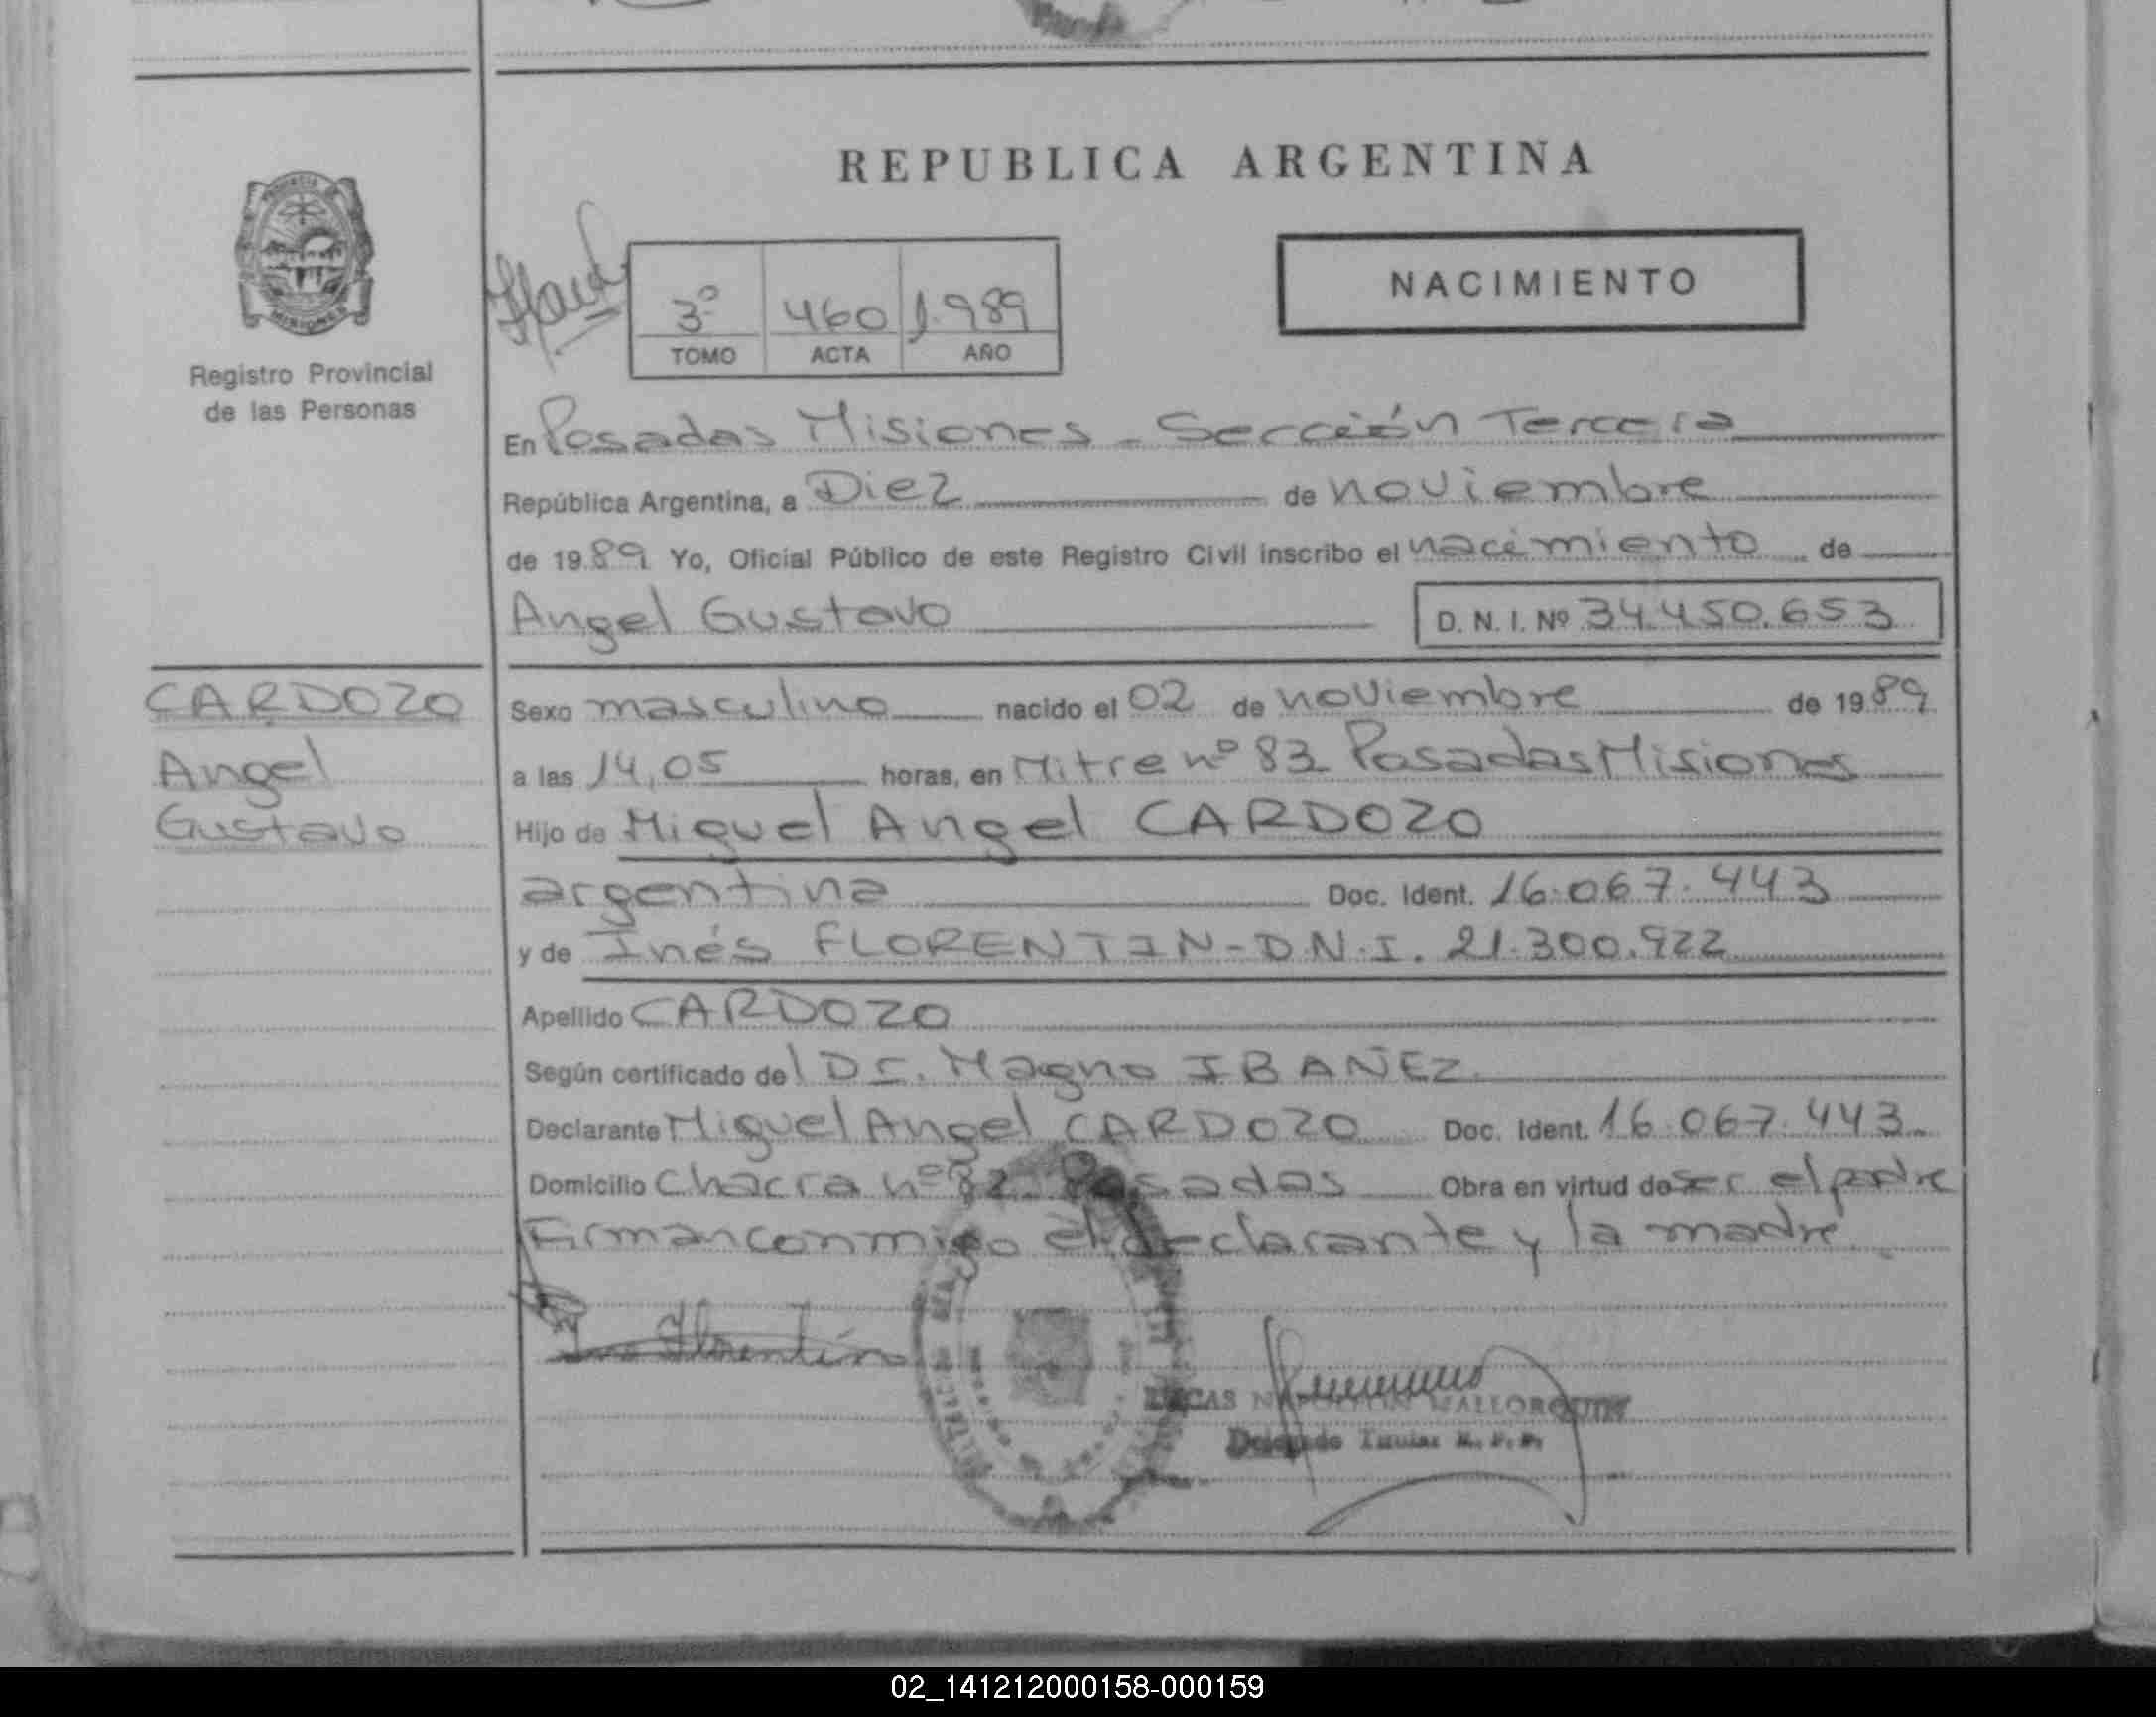 REPUBLICA ARGENTINA
MISIONES
Registro Provincial
de las Personas
3º 460 1.989
TOMO ACTA AÑO
NACIMIENTO
En Posadas Misiones - Sección Tercera
República Argentina, a Diez de noviembre
de 1989 Yo, Oficial Público de este Registro Civil inscribo el nacimiento de
Angel Gustavo D. N. I. Nº 34.450.653
CARDOZO
Angel
Gustavo
Sexo masculino nacido el 02 de noviembre de 1989
a las 14,05 horas, en Mitre nº 83 Posadas Misiones
Hijo de Miguel Angel CARDOZO
argentina Doc. Ident. 16.067.443
y de Inés FLORENTIN - D.N.I. 21.300.922
Apellido CARDOZO
Según certificado del Dr. Magno IBAÑEZ
Declarante Miguel Angel CARDOZO Doc. Ident. 16.067.443.
Domicilio Chacra nº 82. Posadas Obra en virtud de ser el padre
Firman conmigo el declarante y la madre.
Florentín
LUCAS NAPOLEON MALLORQUIN
Delegado Titular R. P. P.
02_141212000158-000159